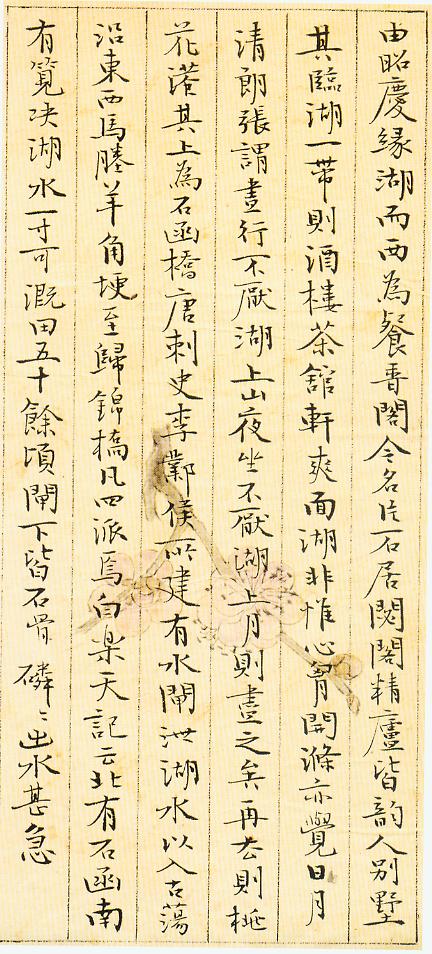 由昭慶緣湖而西為餐香閣今名片石居閟閣精廬皆韵人別墅
其臨湖一帶則酒樓茶舘軒爽面湖非惟心胷開滌亦覺日月
清朗張謂晝行不厭湖上山夜坐不厭湖上月則盡之矣再去則桃
花港其上為石函橋唐刺史李鄴侯所建有水閘泄湖水以入古蕩
沿東西馬塍羊角埂至歸錦橋凡四派焉白楽天記云北有石函南
有筧决湖水一寸可溉田五十餘頃閘下皆石骨磷〻出水甚急